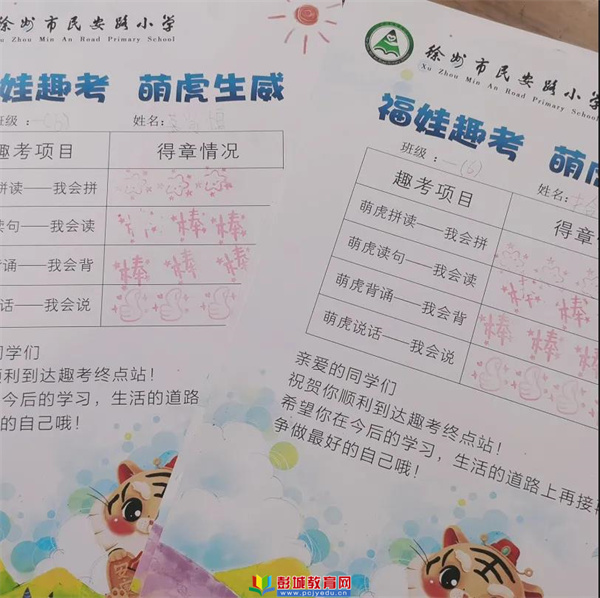 徐州市民安路小学
Xu Zhou Min An Road Primary School
娃趣考 萌虎生威
班级： 一(5) 姓名：
趣考项目 得章情况
拼读——我会拼
读句——我会读
棒 棒
背诵——我会背
棒 棒 棒
话——我会说
同学们
顺利到达趣考终点站！
今后的学习，生活的道路
的自己哦！
徐州市民安路小学
Xu Zhou Min An Road Primary School
福娃趣考 萌虎
班级： 一(6) 姓名：
趣考项目 得章
萌虎拼读——我会拼
萌虎读句——我会读
棒
萌虎背诵——我会背
棒 棒 棒
萌虎说话——我会说
亲爱的同学们
祝贺你顺利到达趣考终点站！
希望你在今后的学习，生活的道路上再接
争做最好的自己哦！
彭城教育网
www.pcjyedu.cn